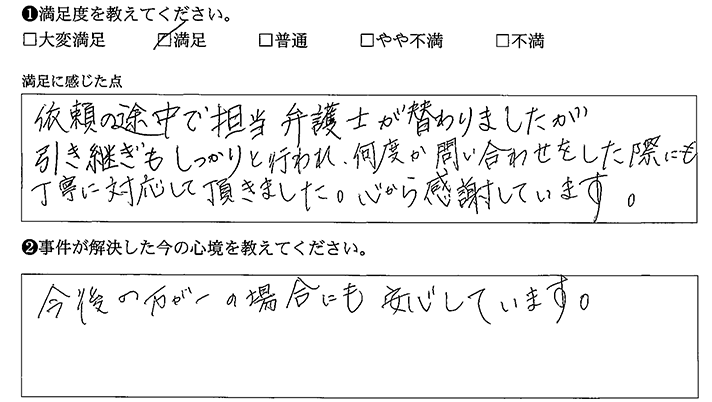 ❶満足度を教えてください。
□大変満足 ☑満足 □普通 □やや不満 □不満
満足に感じた点
依頼の途中で担当弁護士が替わりましたが
引き継ぎもしっかりと行われ、何度か問い合わせをした際にも
丁寧に対応して頂きました。心から感謝しています。
❷事件が解決した今の心境を教えてください。
今後の万が一の場合にも安心しています。